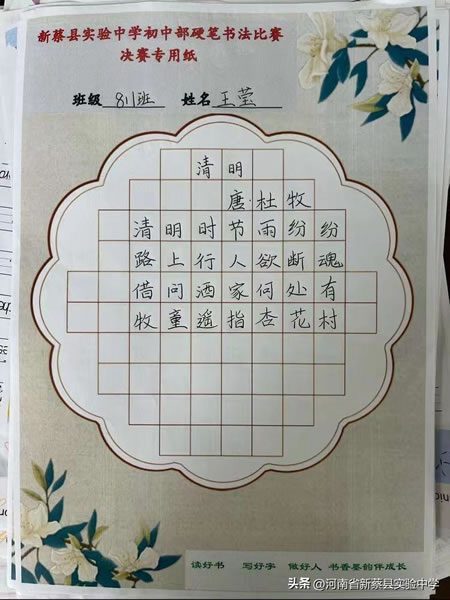 新蔡县实验中学初中部硬笔书法比赛
决赛专用纸
班级 811班 姓名 王莹
清明
唐·杜牧
清明时节雨纷纷
路上行人欲断魂
借问酒家何处有
牧童遥指杏花村
读好书 写好字 做好人 书香墨韵伴成长
头条 @河南省新蔡县实验中学